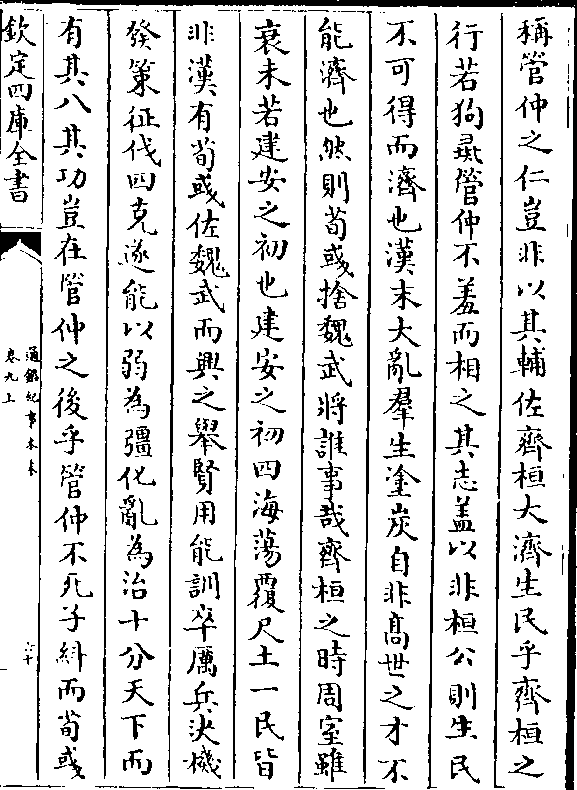 稱管仲之仁豈非以其輔佐齊桓大濟生民乎齊桓之
行若狗彘管仲不羞而相之其志蓋以非桓公則生民
不可得而濟也漢末大亂羣生塗炭自非髙世之才不
能濟也然則荀彧捨魏武將誰事哉齊桓之時周室雖
衰未若建安之初也建安之初四海蕩覆尺土一民皆
非漢有荀彧佐魏武而興之舉賢用能訓卒厲兵決機
發策征伐四克遂能以弱為彊化亂為治十分天下而
有其八其功豈在管仲之後乎管仲不死子糾而荀彧
欽定四庫全書
通鑑紀事本末
卷九上
六十